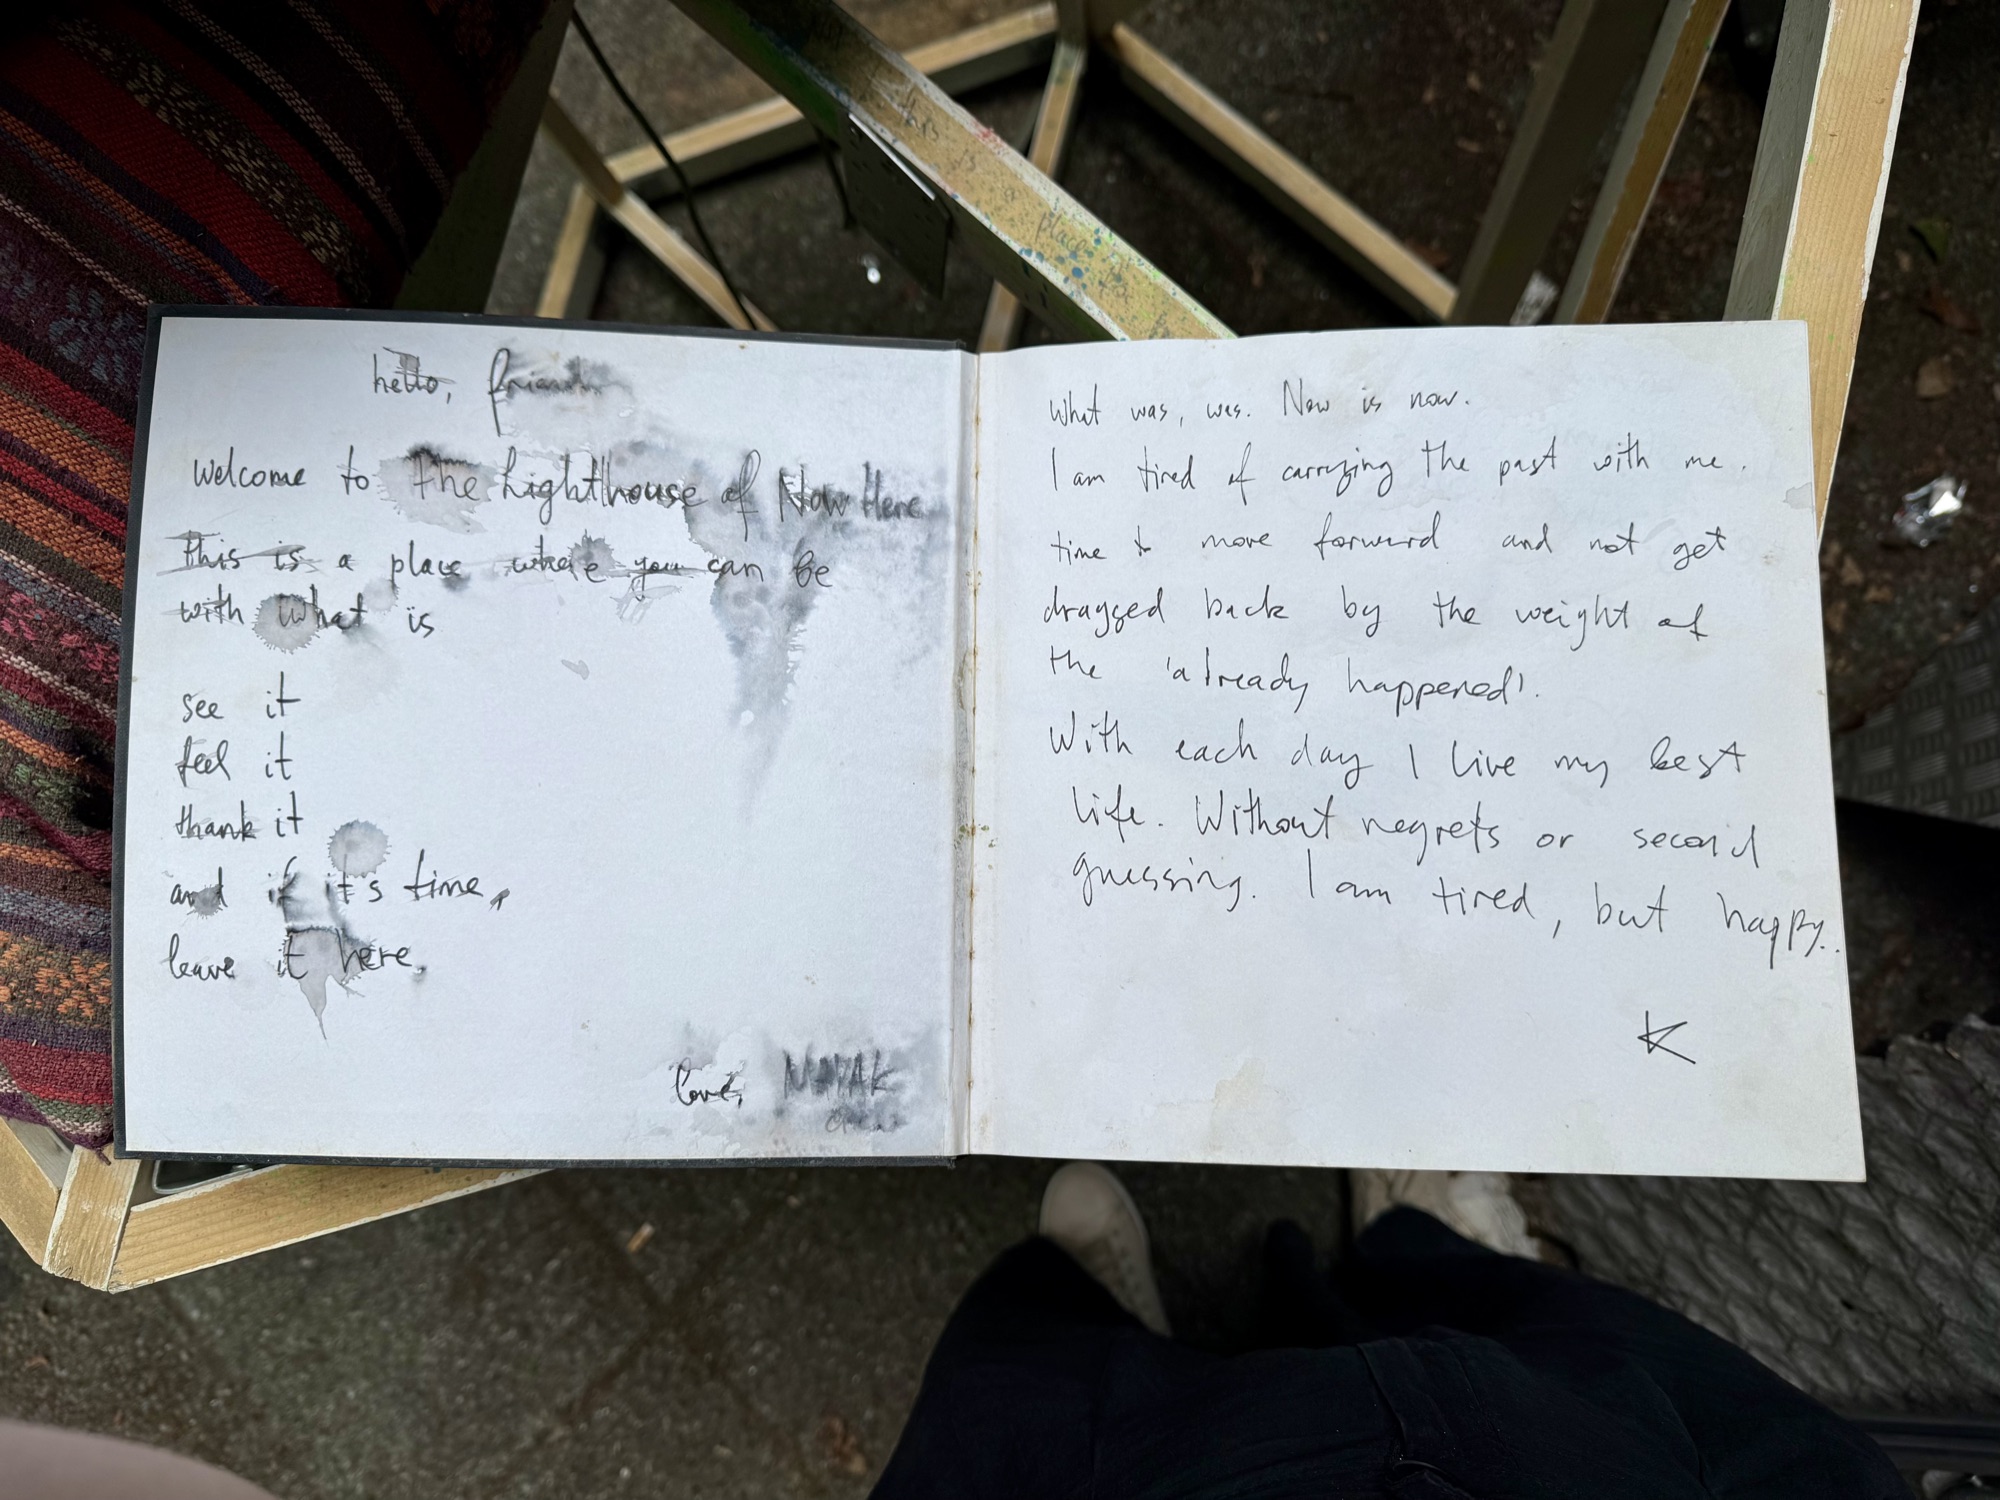 hello, friend
Welcome to the Lighthouse of Now Here
this is a place where you can be
with what is
see it
feel it
thank it
and if it's time,
leave it here,
love,
What was, was. Now is now.
I am tired of carrying the past with me.
time to move forward and not get
dragged back by the weight of
the 'already happened'.
With each day I live my best
life. Without regrets or second
guessing. I am tired, but happy.
K
this
is
a
place